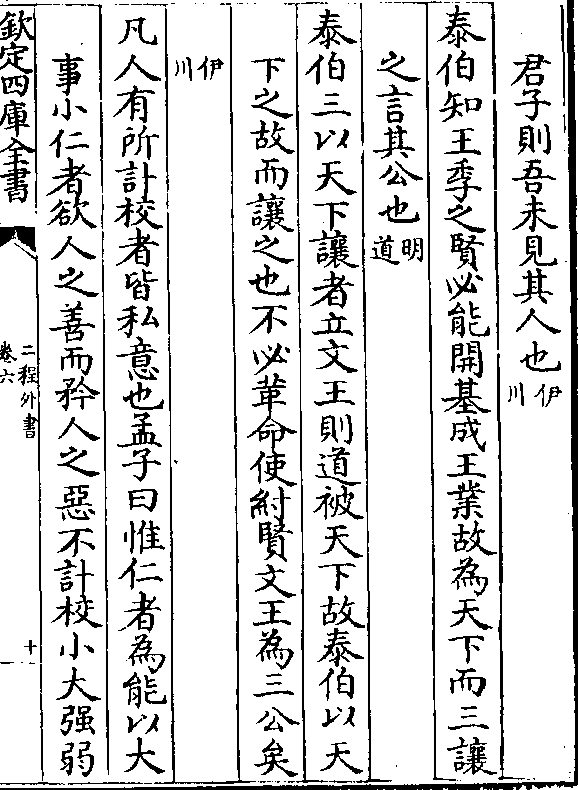 君子則吾未見其人也伊川
泰伯知王季之賢必能開基成王業故為天下而三讓
之言其公也明道
泰伯三以天下讓者立文王則道被天下故泰伯以天
下之故而讓之也不必革命使紂賢文王為三公矣
伊川
凡人有所計校者皆私意也孟子曰惟仁者為能以大
事小仁者欲人之善而矜人之惡不計校小大强弱
欽定四庫全書
二程外書
卷六
十